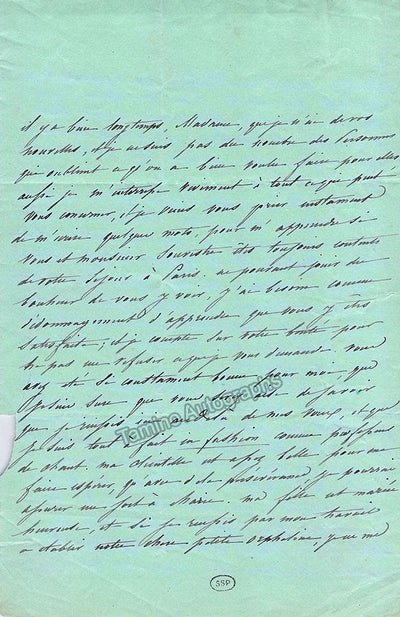 il y a bien longtemps, Madame, que je n'ai de vos
nouvelles, et je ne suis pas du nombre des personnes
que oublient ce qu'on a bien voulu faire pour elles
aussi je m'intéresse vivement à tout ce qui peut
vous concerner, et je viens vous prier instamment
de m'écrire quelques mots pour m'apprendre si
vous et monsieur êtes toujours contents
de votre séjour à Paris. ne pouvant jouir du
bonheur de vous y voir, j'ai besoin comme
dédommagement d'apprendre que vous y êtes
satisfaite; et je compte sur votre bonté pour
ne pas me refuser ce que je vous demande. vous
avez été si constamment bonne pour moi que
je suis sure que vous serez aise de savoir
que je réussis ici au delà de mes vœux, et que
je suis tout à fait en fashion comme professeur
de chant ma clientelle est assez belle pour me
faire espérer qu'avec de la persévérance je pourrai
assurer un sort à Marie. ma fille est mariée
heureuse, et si je réussis par mon travail
à établir notre chère petite orpheline, je ne me
Tamino Autographs
SSP